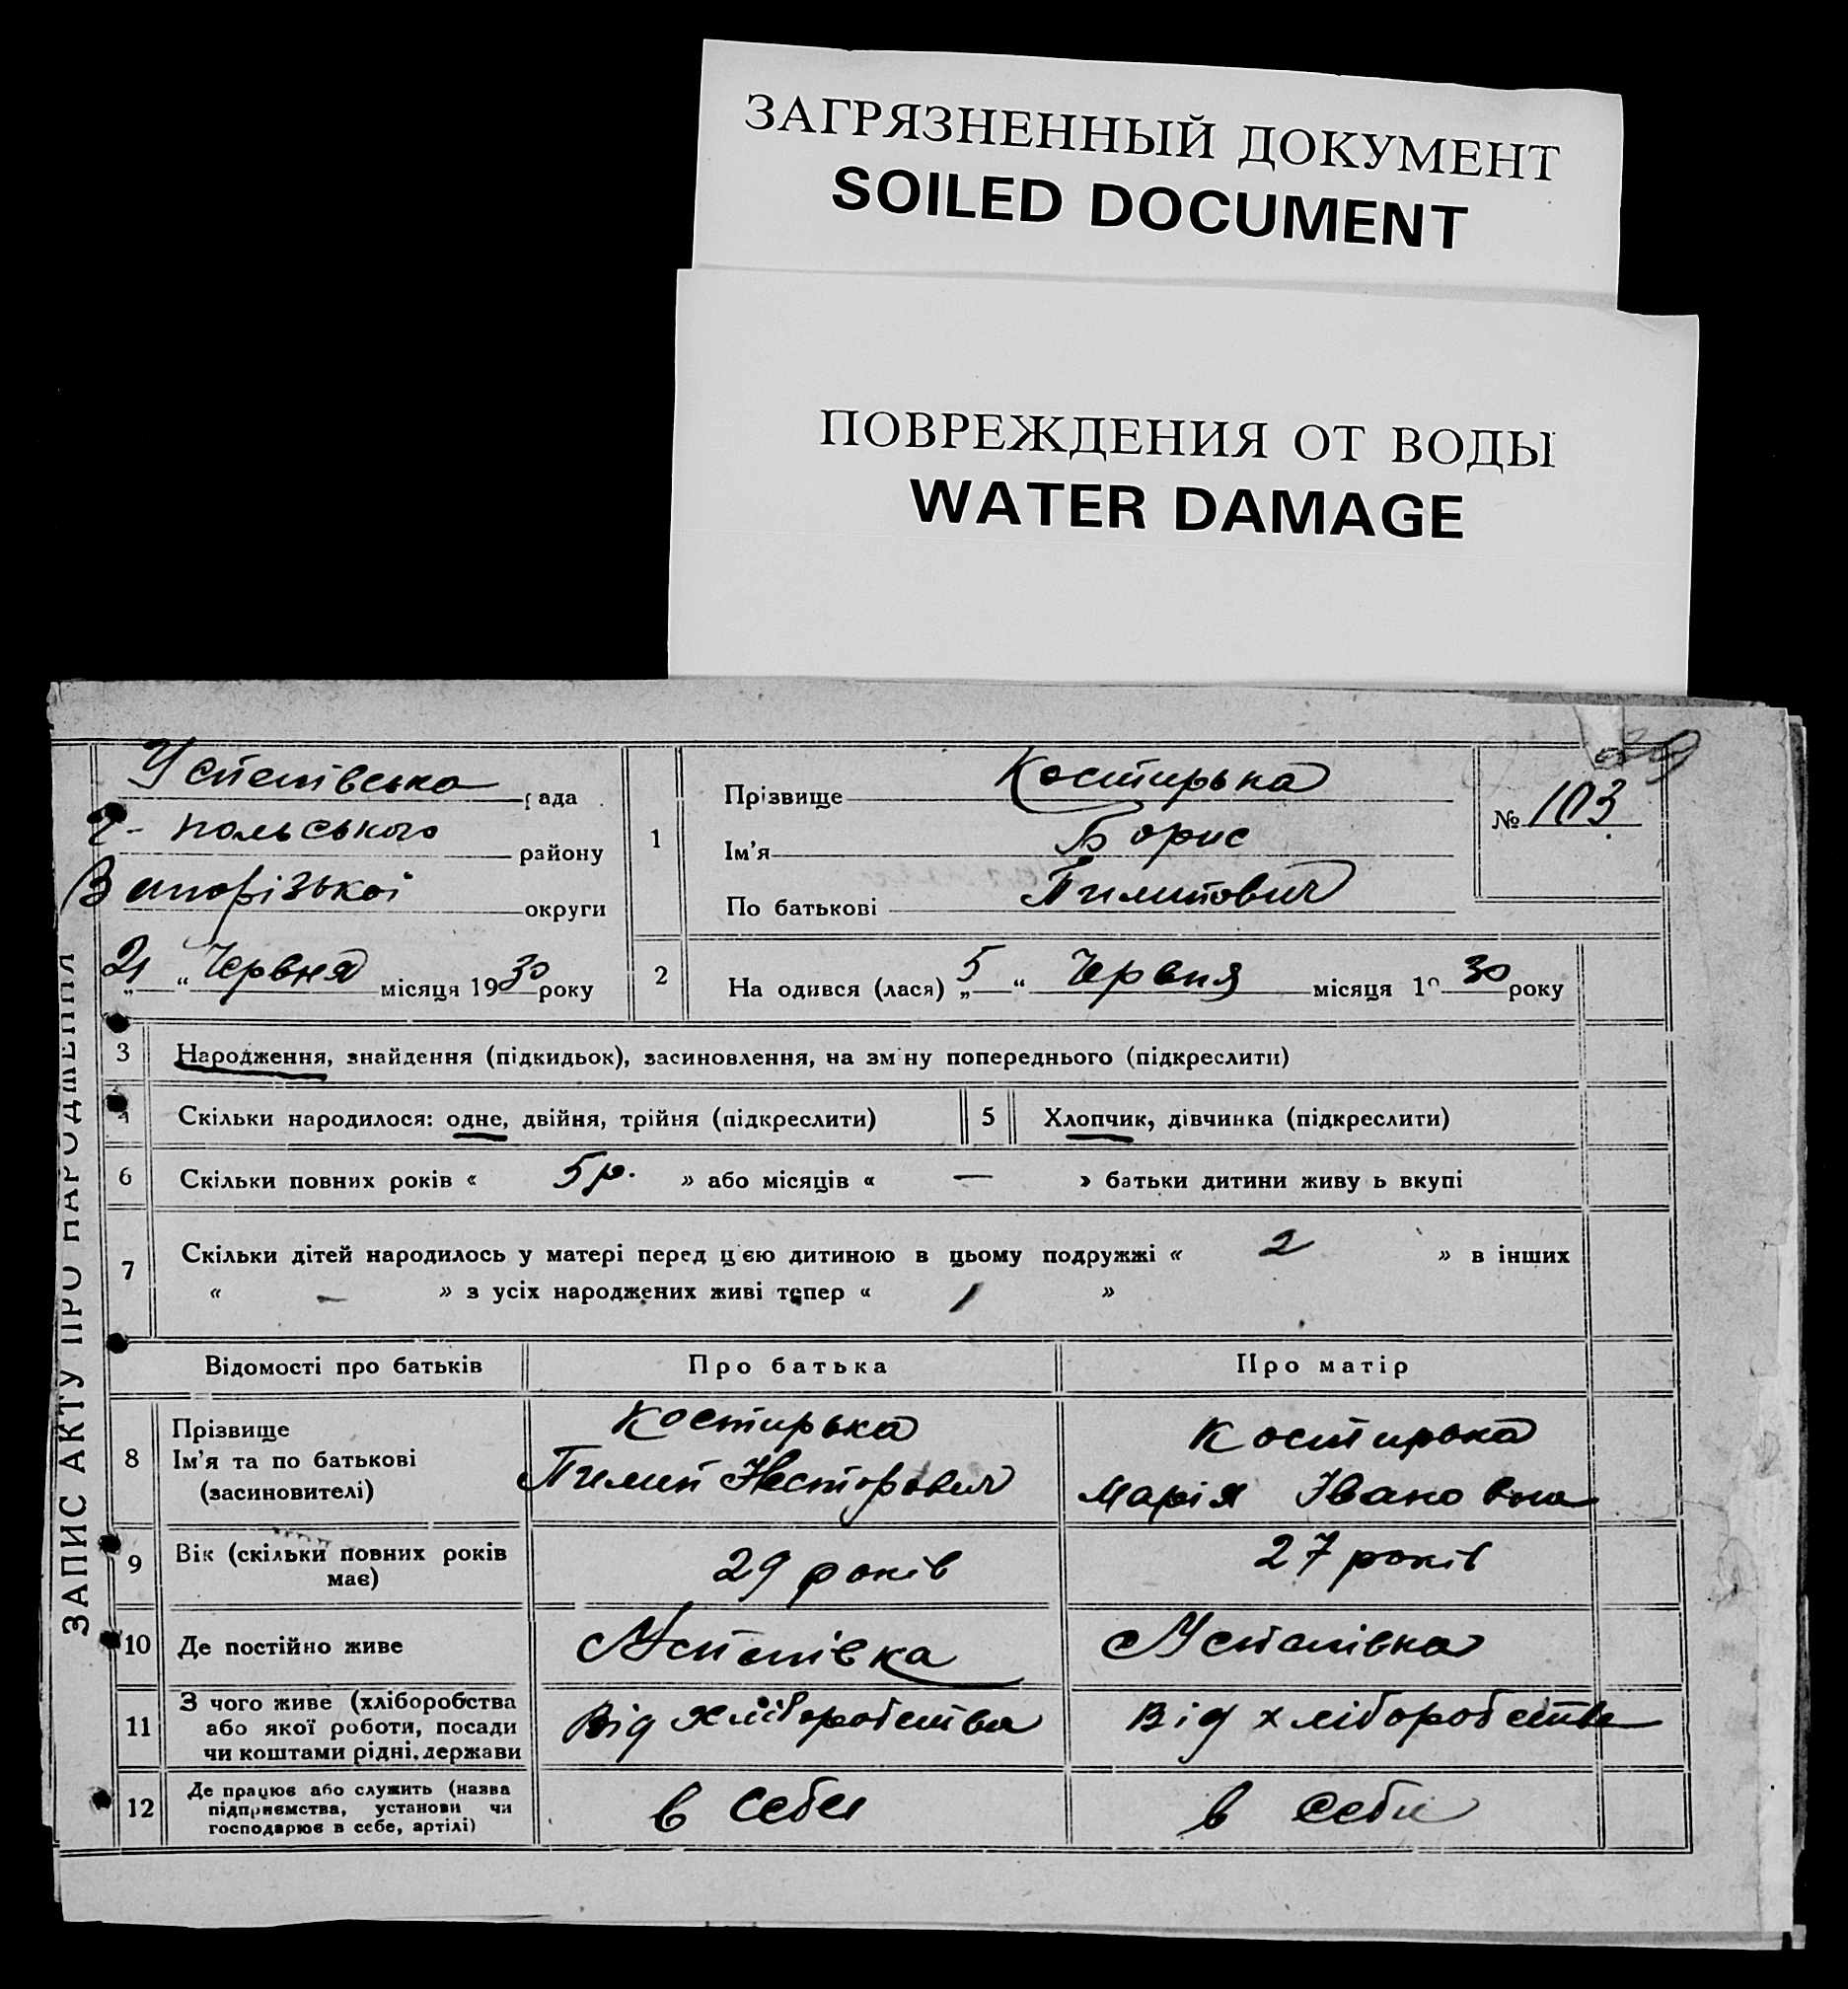 ЗАГРЯЗНЕННЫЙ ДОКУМЕНТ
SOILED DOCUMENT
ПОВРЕЖДЕНИЯ ОТ ВОДЫ
WATER DAMAGE
ЗАПИС АКТУ ПРО НАРОДЖЕННЯ
Успенівська рада
г-польського району
Запорізької округи
21 „ “ Червня місяця 1930 року
1
Прізвище Костирька
Ім'я Борис
По батькові Пилипович
№ 103
2
На одився (лася) „5“ Червня місяця 1930 року
3 Народження, знайдення (підкидьок), засиновлення, на зм ну попереднього (підкреслити)
4 Скільки народилося: одне, двійня, трійня (підкреслити) 5 Хлопчик, дівчинка (підкреслити)
6 Скільки повних років « 5 р. » або місяців « — » батьки дитини живу ь вкупі
7 Скільки дітей народилось у матері перед цією дитиною в цьому подружжі « 2 » в інших
« – » з усіх народжених живі тепер « 1 »
Відомості про батьків Про батька Про матір
8 Прізвище
Ім'я та по батькові
(засиновителі)
Костирька
Пилип Несторович
Костирька
Марія Івановна
9 Вік (скільки повних років
має)
29 років
27 років
10 Де постійно живе Успенівка Успенівка
11 З чого живе (хліборобства
або якої роботи, посади
чи коштами рідні, держави
Від хліборобства
Від хліборобства
12 Де працює або служить (назва
підприємства, установи чи
господарює в себе, артілі)
в себе
в себе